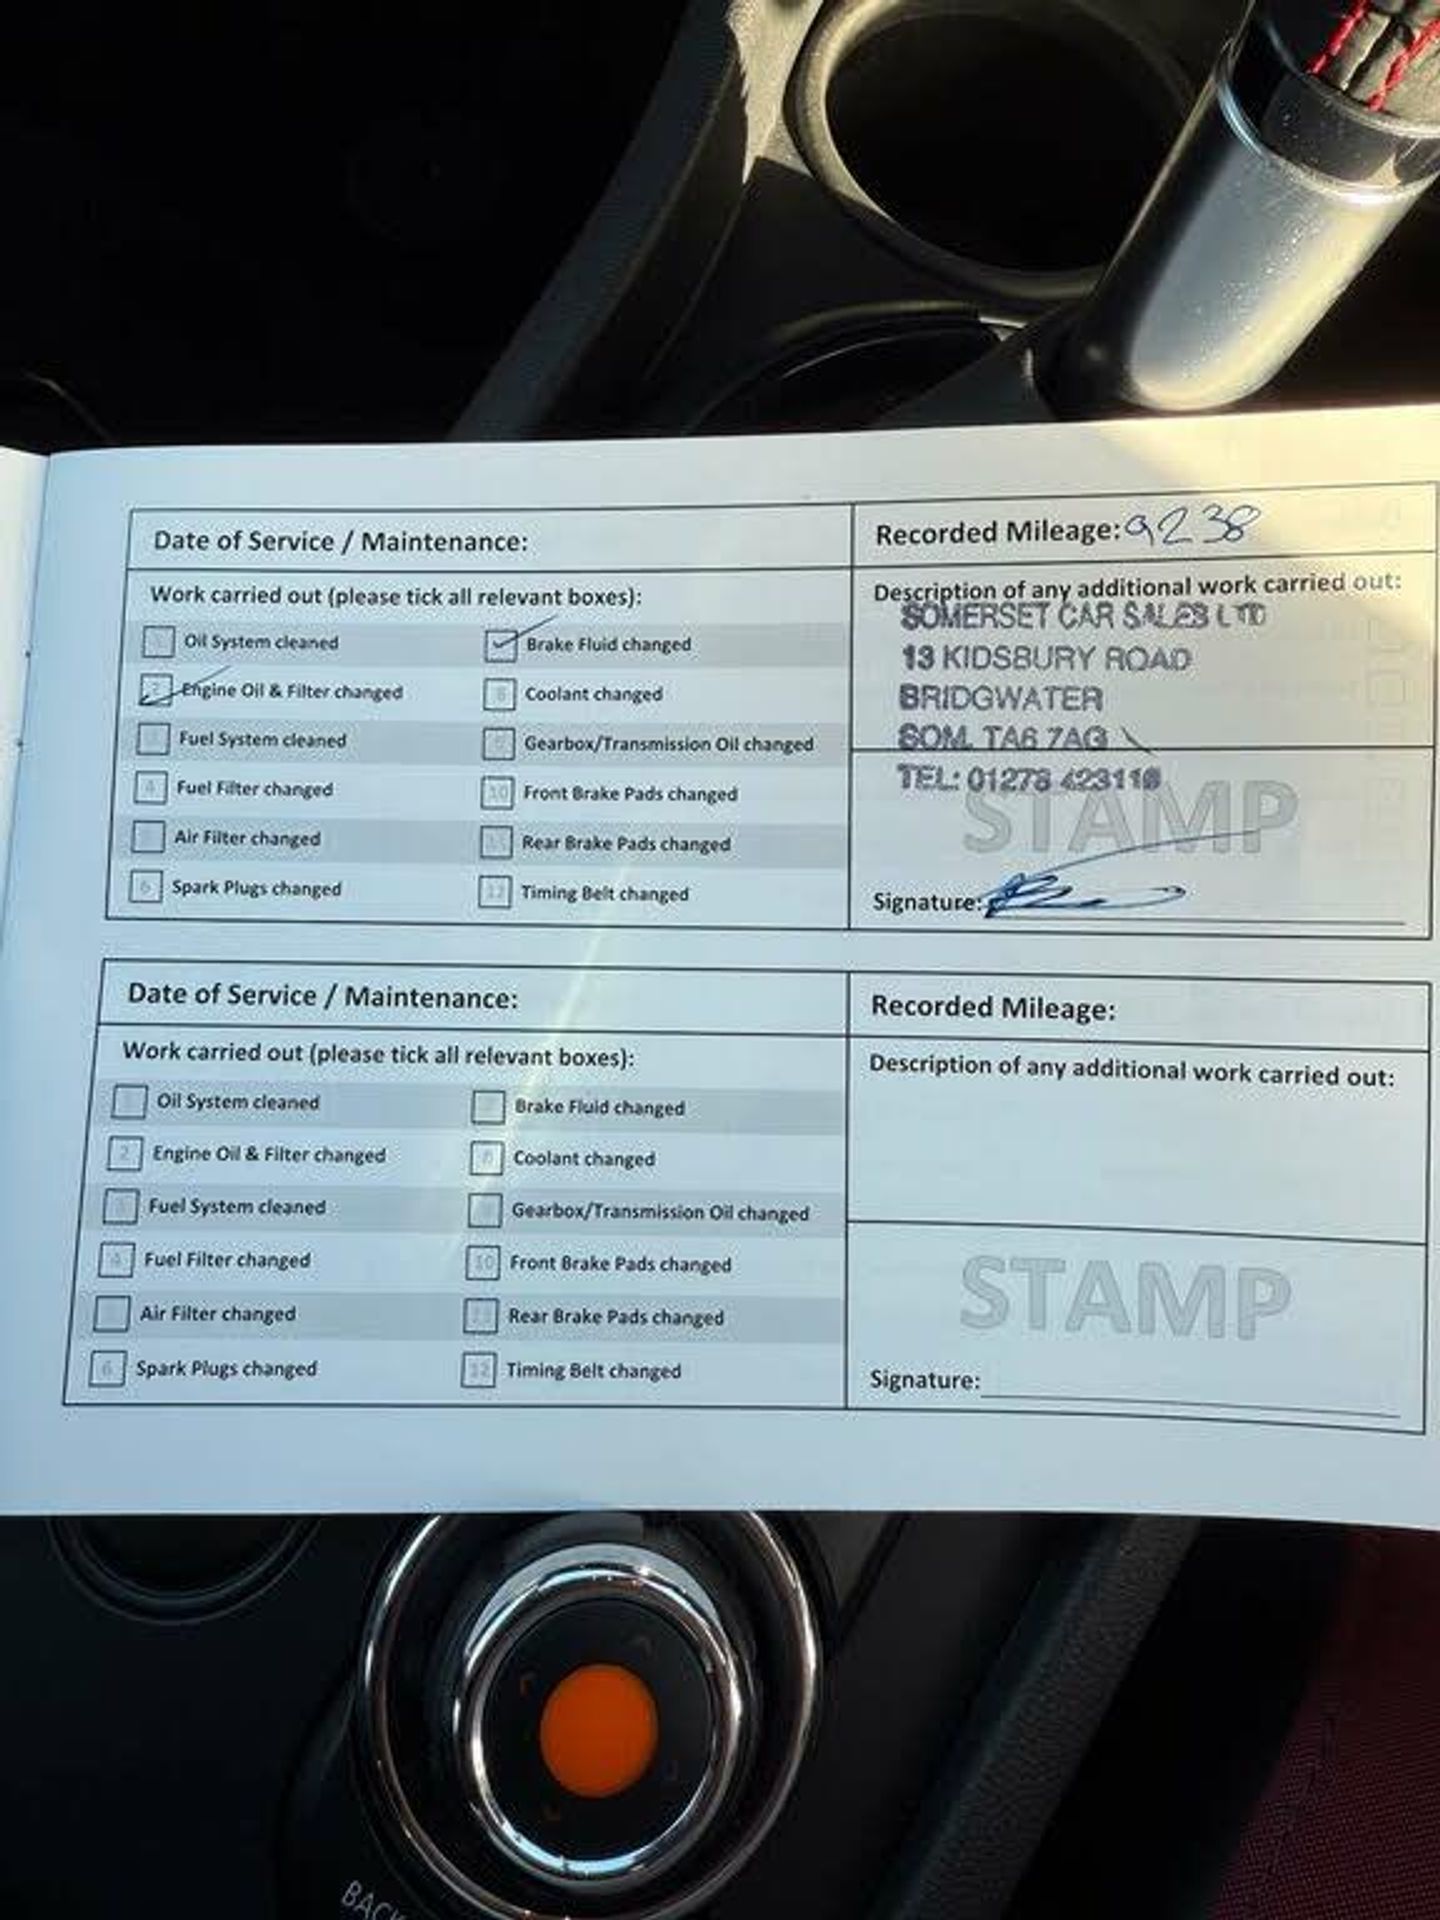 Date of Service / Maintenance:
Recorded Mileage: 9238
Work carried out (please tick all relevant boxes):
Description of any additional work carried out:
Oil System cleaned
Brake Fluid changed
2 Engine Oil & Filter changed
8 Coolant changed
Fuel System cleaned
Gearbox/Transmission Oil changed
4 Fuel Filter changed
10 Front Brake Pads changed
Air Filter changed
Rear Brake Pads changed
6 Spark Plugs changed
12 Timing Belt changed
SOMERSET CAR SALES LTD
13 KIDSBURY ROAD
BRIDGWATER
SOM. TA6 7AG
TEL: 01278 423116
STAMP
Signature:
Date of Service / Maintenance:
Recorded Mileage:
Work carried out (please tick all relevant boxes):
Description of any additional work carried out:
Oil System cleaned
Brake Fluid changed
2 Engine Oil & Filter changed
8 Coolant changed
Fuel System cleaned
Gearbox/Transmission Oil changed
4 Fuel Filter changed
10 Front Brake Pads changed
Air Filter changed
Rear Brake Pads changed
6 Spark Plugs changed
12 Timing Belt changed
STAMP
Signature:
BACK